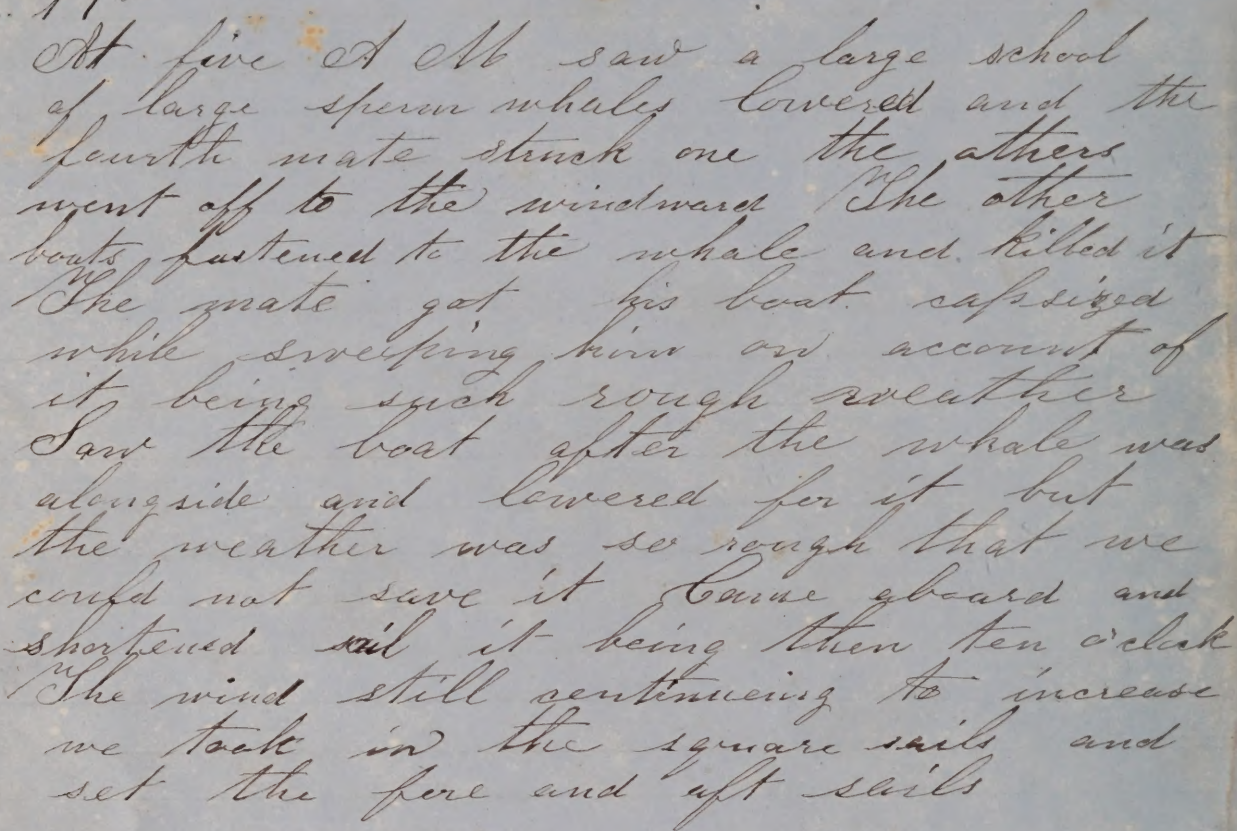 At five A M saw a large school
of large sperm whales lowered and the
fourth mate struck one the others
went off to the windward The other
boats fastened to the whale and killed it
The mate got his boat capsized
while sweeping him on account of
it being such rough weather
Saw the boat after the whale was
alongside and lowered for it but
the weather was so rough that we
could not save it Came aboard and
shortened sail it being then ten o'clock
The wind still continueing to increase
we took in the square sails and
set the fore and aft sails